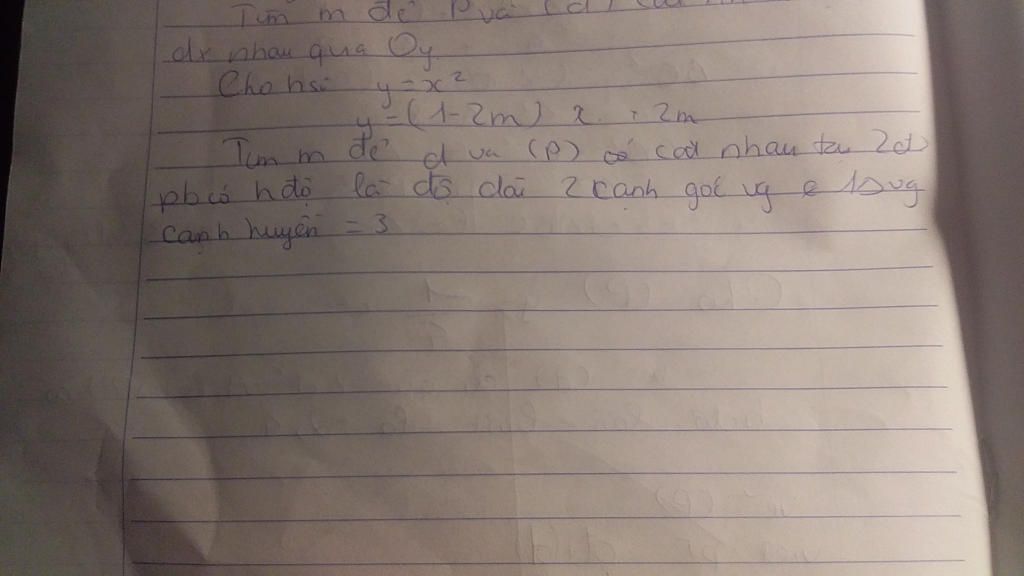 Tìm m để P và (d) cắt
dx nhau qua Oy
Cho hsố y = x²
y = (1-2m) x + 2m
Tìm m để d và (P) cắt nhau tại 2đ
pb có hđộ là độ dài 2 cạnh góc vg 1Δvg
cạnh huyền = 3